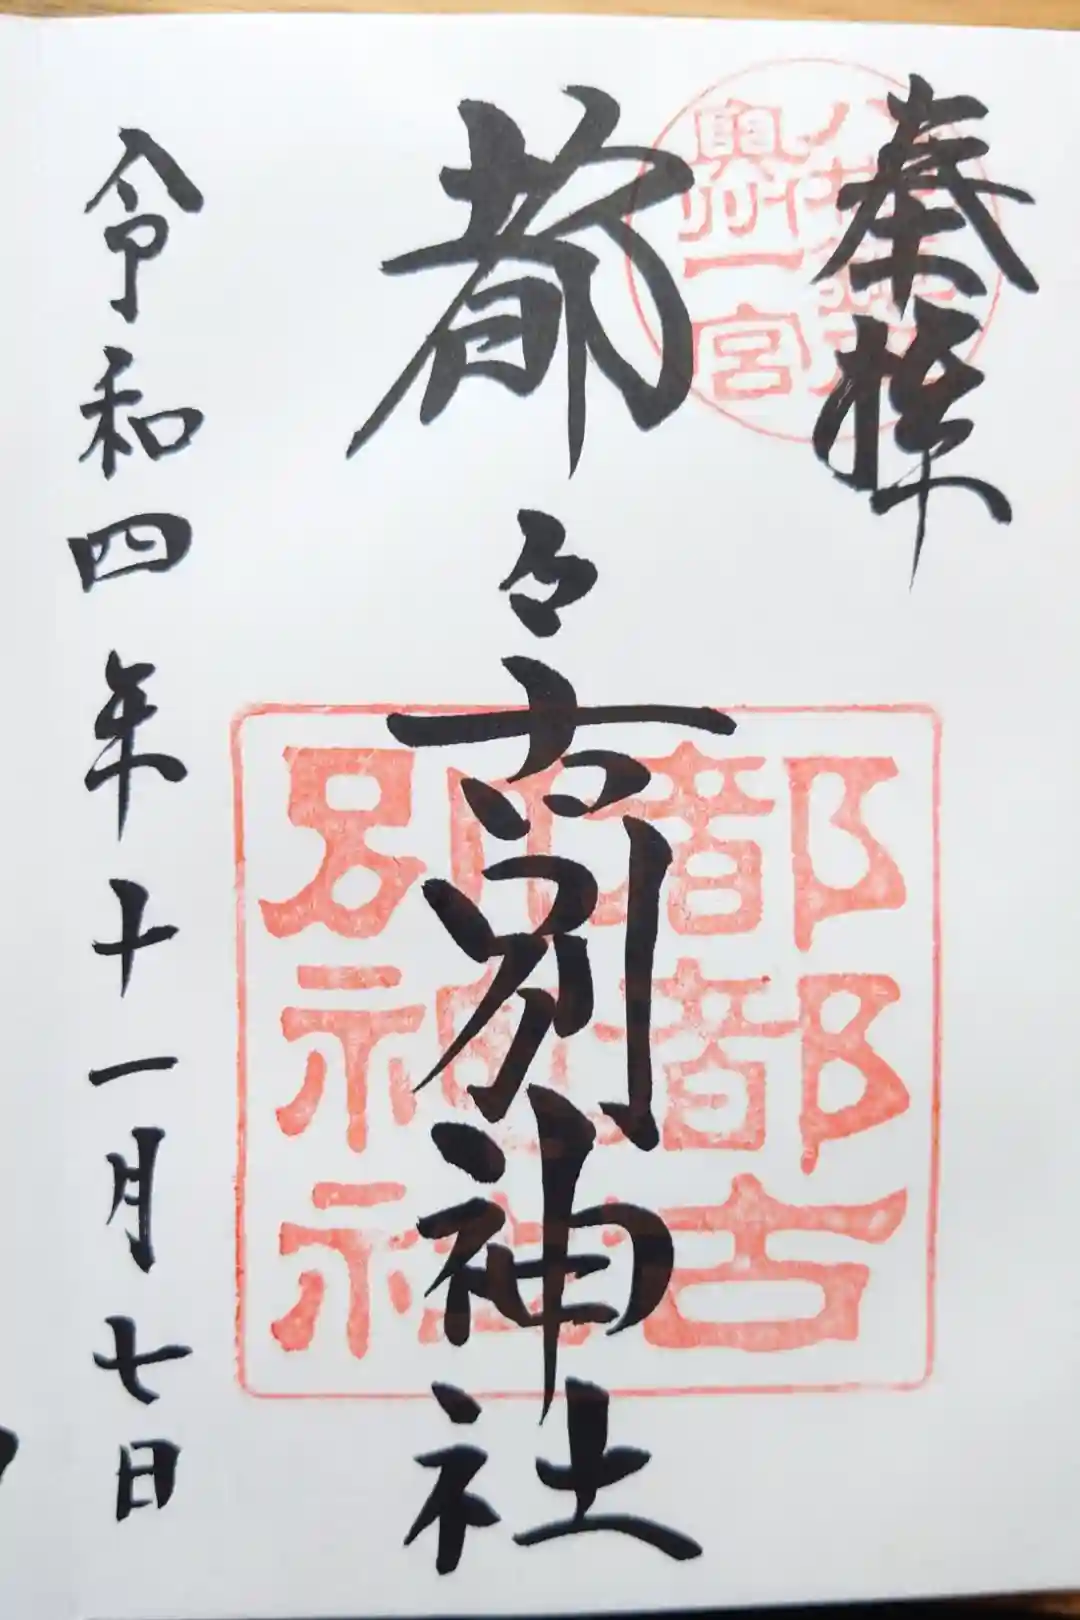 奉拝
奥州一宮
都々古別神社
都都古
別神社
令和四年十一月七日